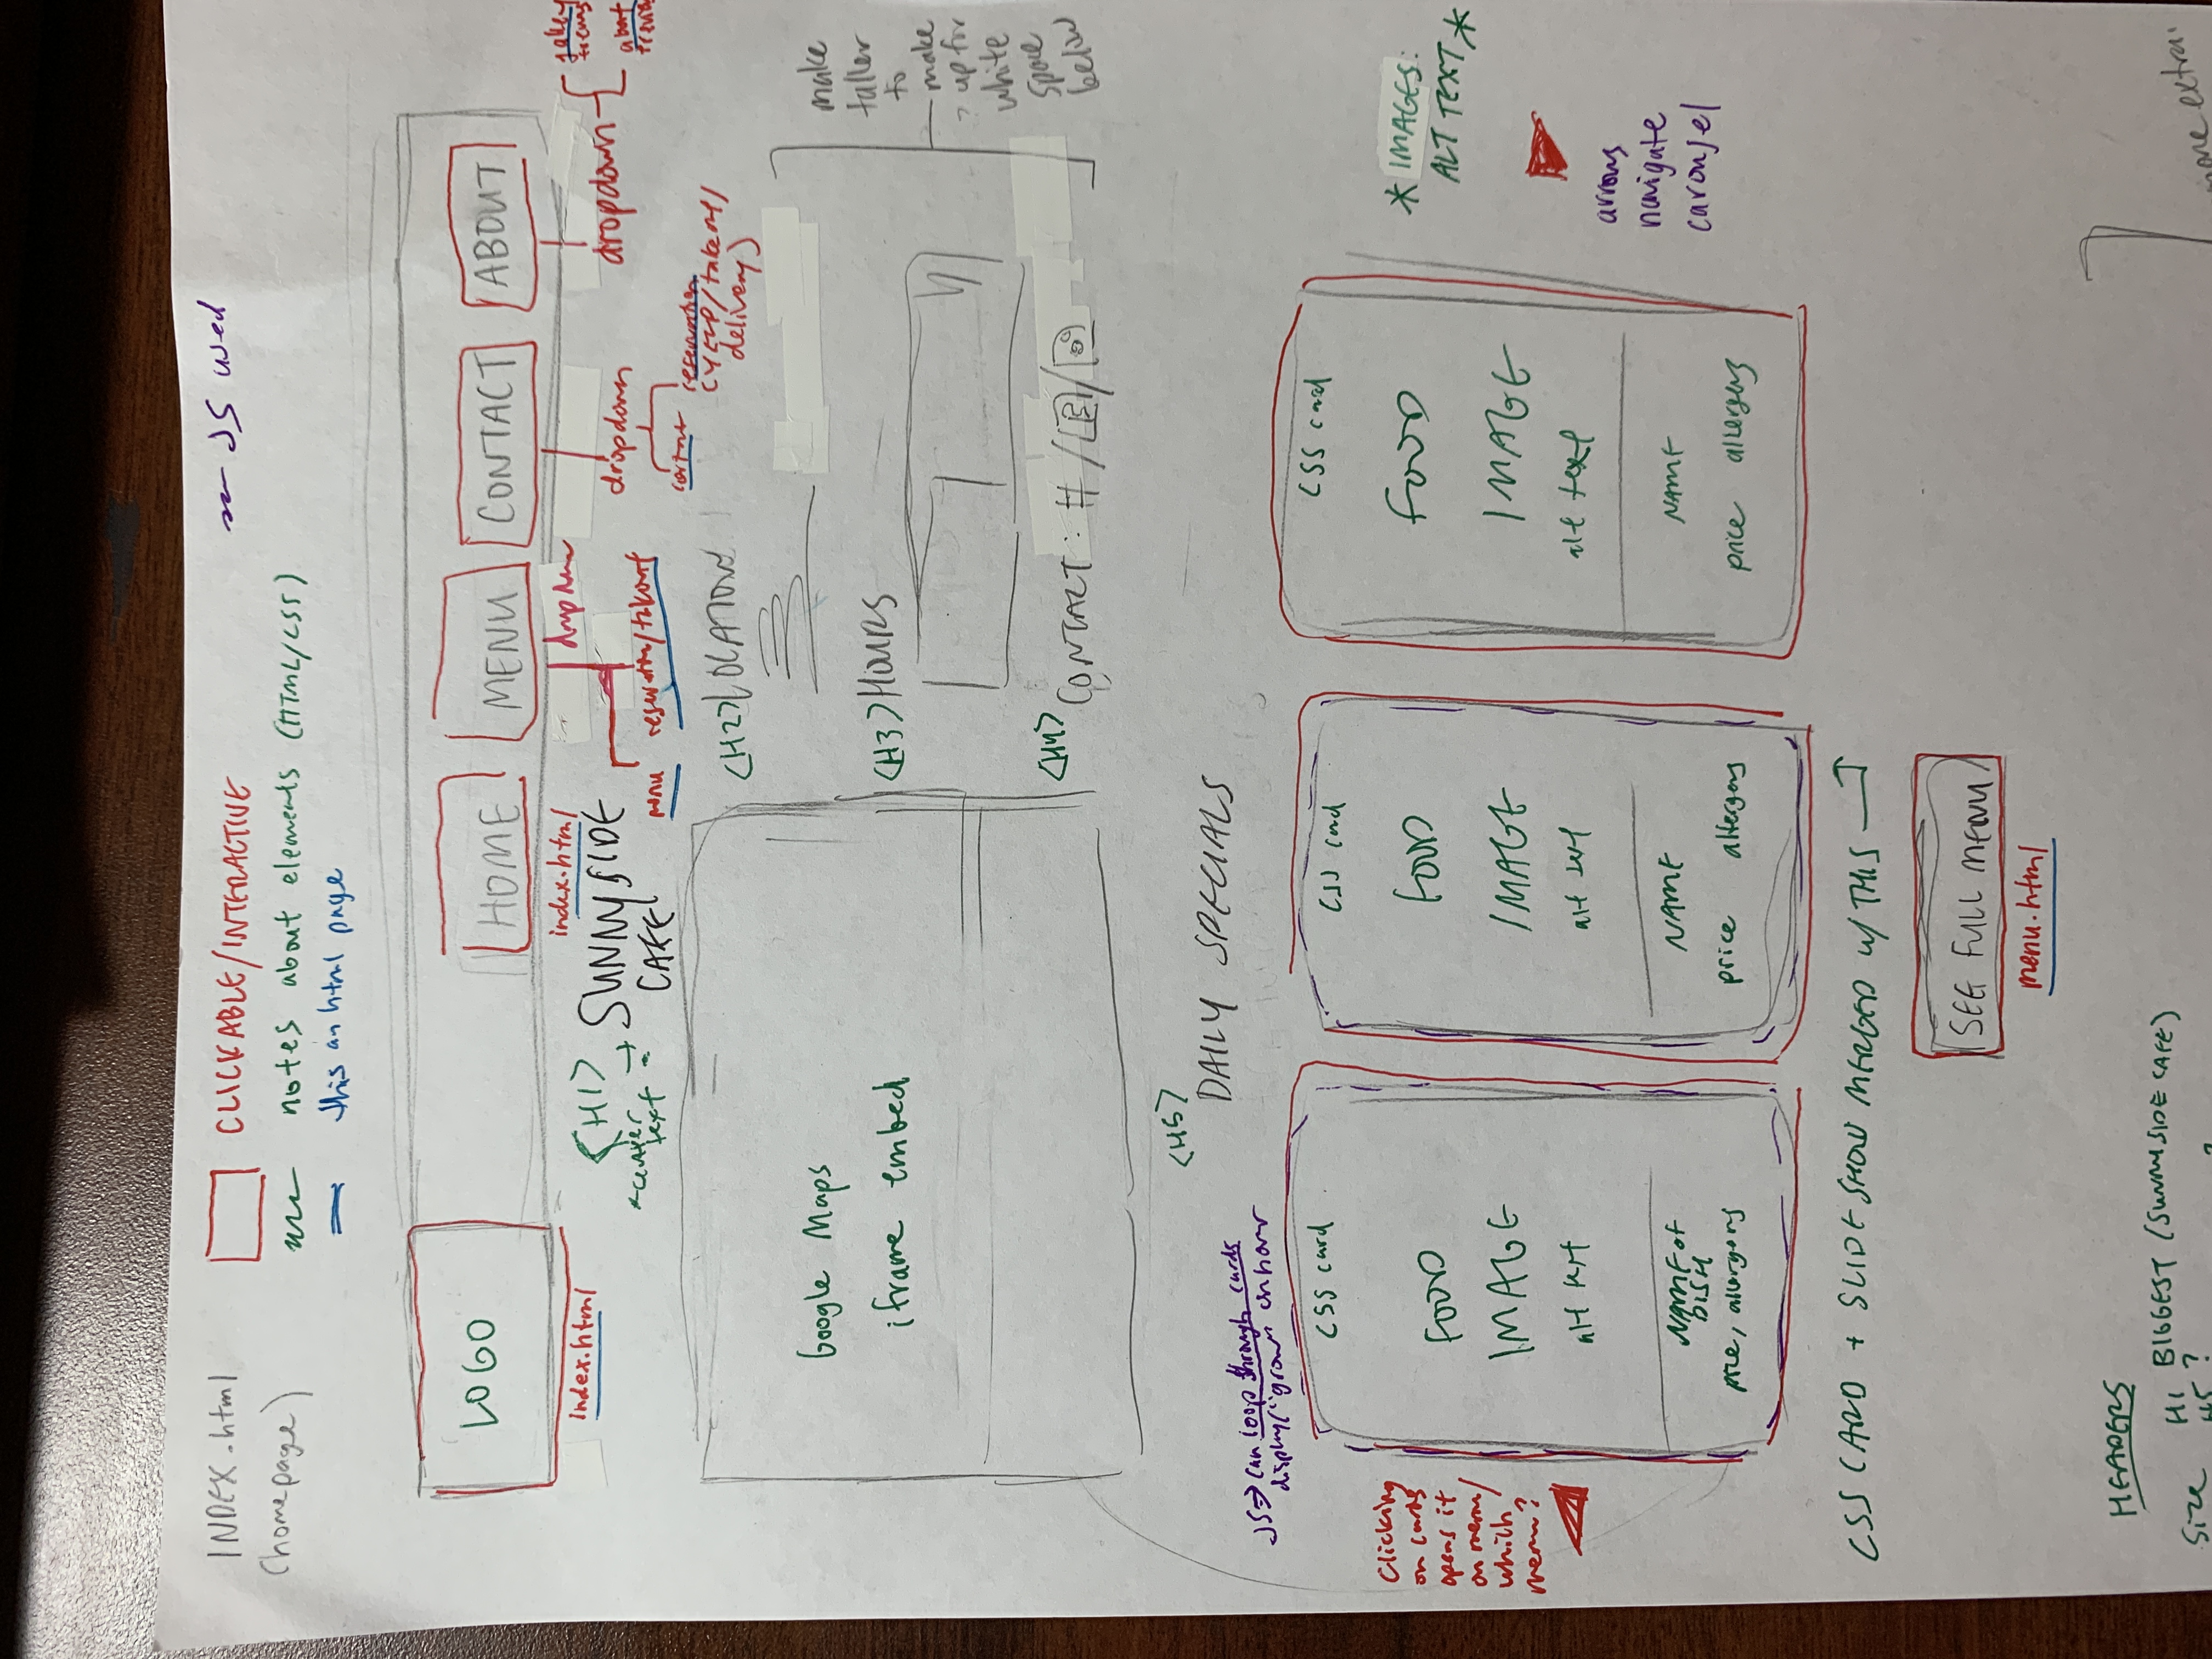 INDEX.html
(homepage)
CLICKABLE/INTERACTIVE
notes about elements (HTML/CSS)
this an html page
JS used
LOGO
HOME
MENU
CONTACT
ABOUT
index.html
index.html
dropdown
menu
reservation/takeout
dropdown
contact
reservation
(YELP/takeout/
delivery)
dropdown
about
<H1>
*center
text
SUNNYSIDE
CAFE
Google Maps
iframe embed
<H2> LOCATION
<H3> HOURS
<H4> CONTACT: # /
make
taller
to
make
up for
white
space
below
<H5>
DAILY SPECIALS
JS => can loop through cards
display/"grow" on hover
Clicking
on cards
opens it
on menu/
which
menu?
CSS card
FOOD
IMAGE
alt text
NAME OF
DISH
price, allergens
CSS card
FOOD
IMAGE
alt text
NAME
price allergens
CSS card
FOOD
IMAGE
alt text
NAME
price allergens
* IMAGES:
ALT TEXT *
arrows
navigate
carousel
CSS CARD + SLIDESHOW MERGED w/ THIS
SEE FULL MENU
menu.html
HEADERS
Size H1 BIGGEST (SUNNYSIDE CAFE)
H5 ?
more extra.